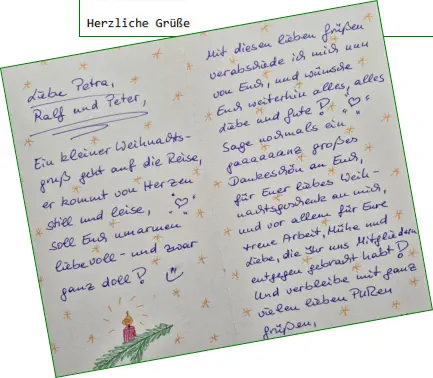 Herzliche Grüße
Liebe Petra,
Ralf und Peter,
Ein kleiner Weihnachts-
gruß geht auf die Reise,
er kommt von Herzen
still und leise,
soll Euch umarmen
liebevoll - und zwar
ganz doll!
Mit diesen lieben Grüßen
verabschiede ich mich nun
von Euch, und wünsche
Euch weiterhin alles, alles
Liebe und Gute!
Sage nochmals ein
gaaaaaanz großes
Dankeschön an Euch,
für Euer liebes Weih-
nachtsgeschenk an mich,
und vor allem für Eure
treue Arbeit, Mühe und
Liebe, die Ihr uns Mitgliedern
entgegen gebracht habt!
Und verbleibe mit ganz
vielen lieben
grüßen,